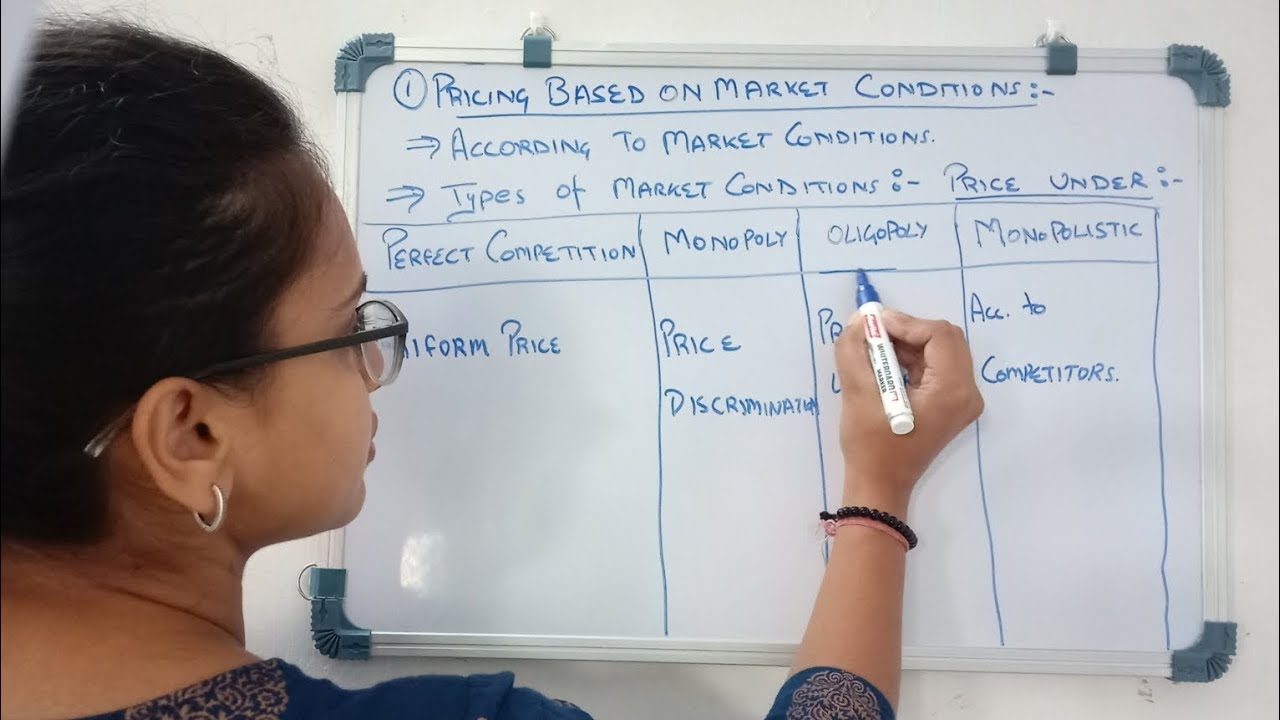 ① PRICING BASED ON MARKET CONDITIONS :-
⇒ ACCORDING TO MARKET CONDITIONS.
⇒ Types of MARKET CONDITIONS :- PRICE UNDER :-
PERFECT COMPETITION MONOPOLY OLIGOPOLY MONOPOLISTIC
PRICE Acc. to
IFORM PRICE
DISCRIMINATION COMPETITORS.
WHITEBOARD MARKER